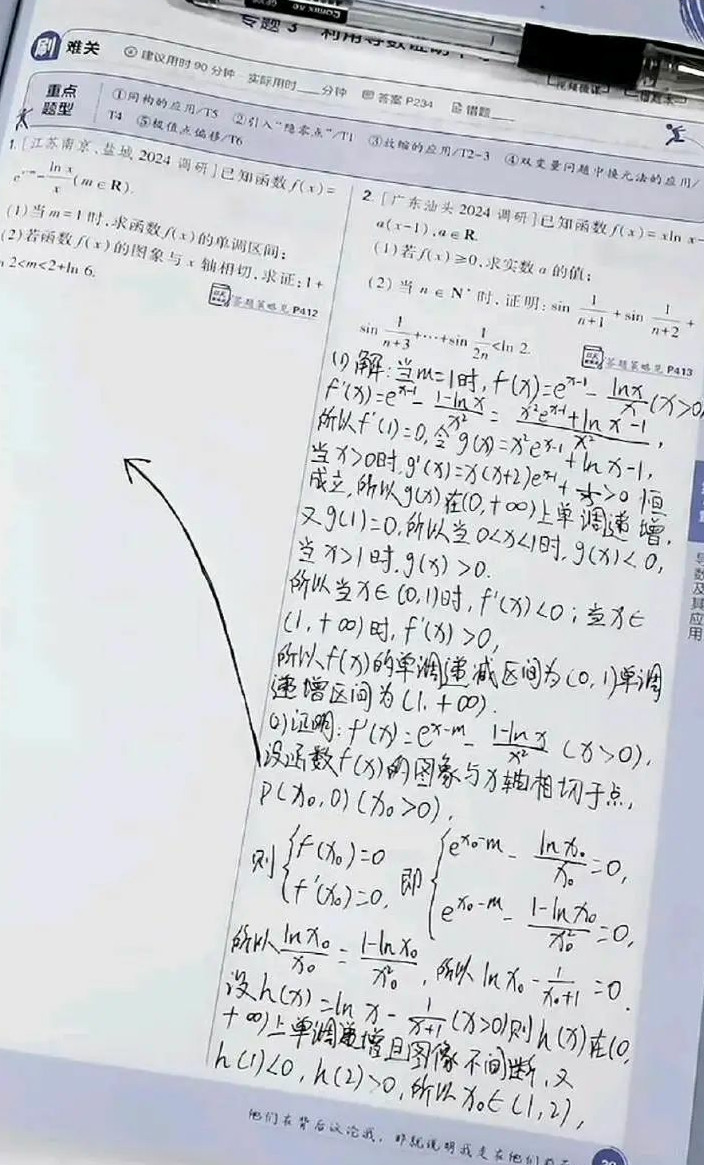 专题3 利用导数证明
刷 难关
建议用时90分钟 实际用时____分钟 答案P234 错题____
重点题型
①同构的应用/T5 ②引入“隐零点”/T1 ③放缩的应用/T2-3 ④双变量问题中换元法的应用/
T4 ⑤极值点偏移/T6
1. [江苏南京、盐城2024调研]已知函数f(x)=
e^{x-m}-\frac{\ln x}{x}(m∈R).
(1)当m=1时,求函数f(x)的单调区间;
(2)若函数f(x)的图象与x轴相切,求证:1+
2<m<2+ln 6.
答题策略见P412
2. [广东汕头2024调研]已知函数f(x)=xln x-
a(x-1),a∈R.
(1)若f(x)≥0,求实数a的值;
(2)当n∈N*时,证明:sin\frac{1}{n+1}+sin\frac{1}{n+2}+
sin\frac{1}{n+3}+…+sin\frac{1}{2n}<ln 2.
答题策略见P413
(1)解:当m=1时,f(x)=e^{x-1}-\frac{lnx}{x}(x>0
f'(x)=e^{x-1}-\frac{1-lnx}{x²}=\frac{x²e^{x-1}+lnx-1}{x²},
所以f'(1)=0,令g(x)=x²e^{x-1}+lnx-1,
当x>0时,g'(x)=x(x+2)e^{x-1}+\frac{1}{x}>0恒
成立,所以g(x)在(0,+∞)上单调递增,
又g(1)=0,所以当0<x<1时,g(x)<0,
当x>1时,g(x)>0.
所以当x∈(0,1)时,f'(x)<0;当x∈
(1,+∞)时,f'(x)>0,
所以f(x)的单调递减区间为(0,1)单调
递增区间为(1,+∞).
(2)证明:f'(x)=e^{x-m}-\frac{1-lnx}{x²}(x>0),
设函数f(x)的图象与x轴相切于点,
P(x₀,0)(x₀>0),
则{f(x₀)=0 即{e^{x₀-m}-\frac{lnx₀}{x₀}=0,
f'(x₀)=0, e^{x₀-m}-\frac{1-lnx₀}{x₀²}=0,
所以\frac{lnx₀}{x₀}=\frac{1-lnx₀}{x₀²},所以lnx₀-\frac{1}{x₀+1}=0.
设h(x)=lnx-\frac{1}{x+1}(x>0)则h(x)在(0,
+∞)上单调递增且图像不间断,又
h(1)<0,h(2)>0,所以x₀∈(1,2),
导数及其应用
他们在背后议论我,那就说明我走在他们前